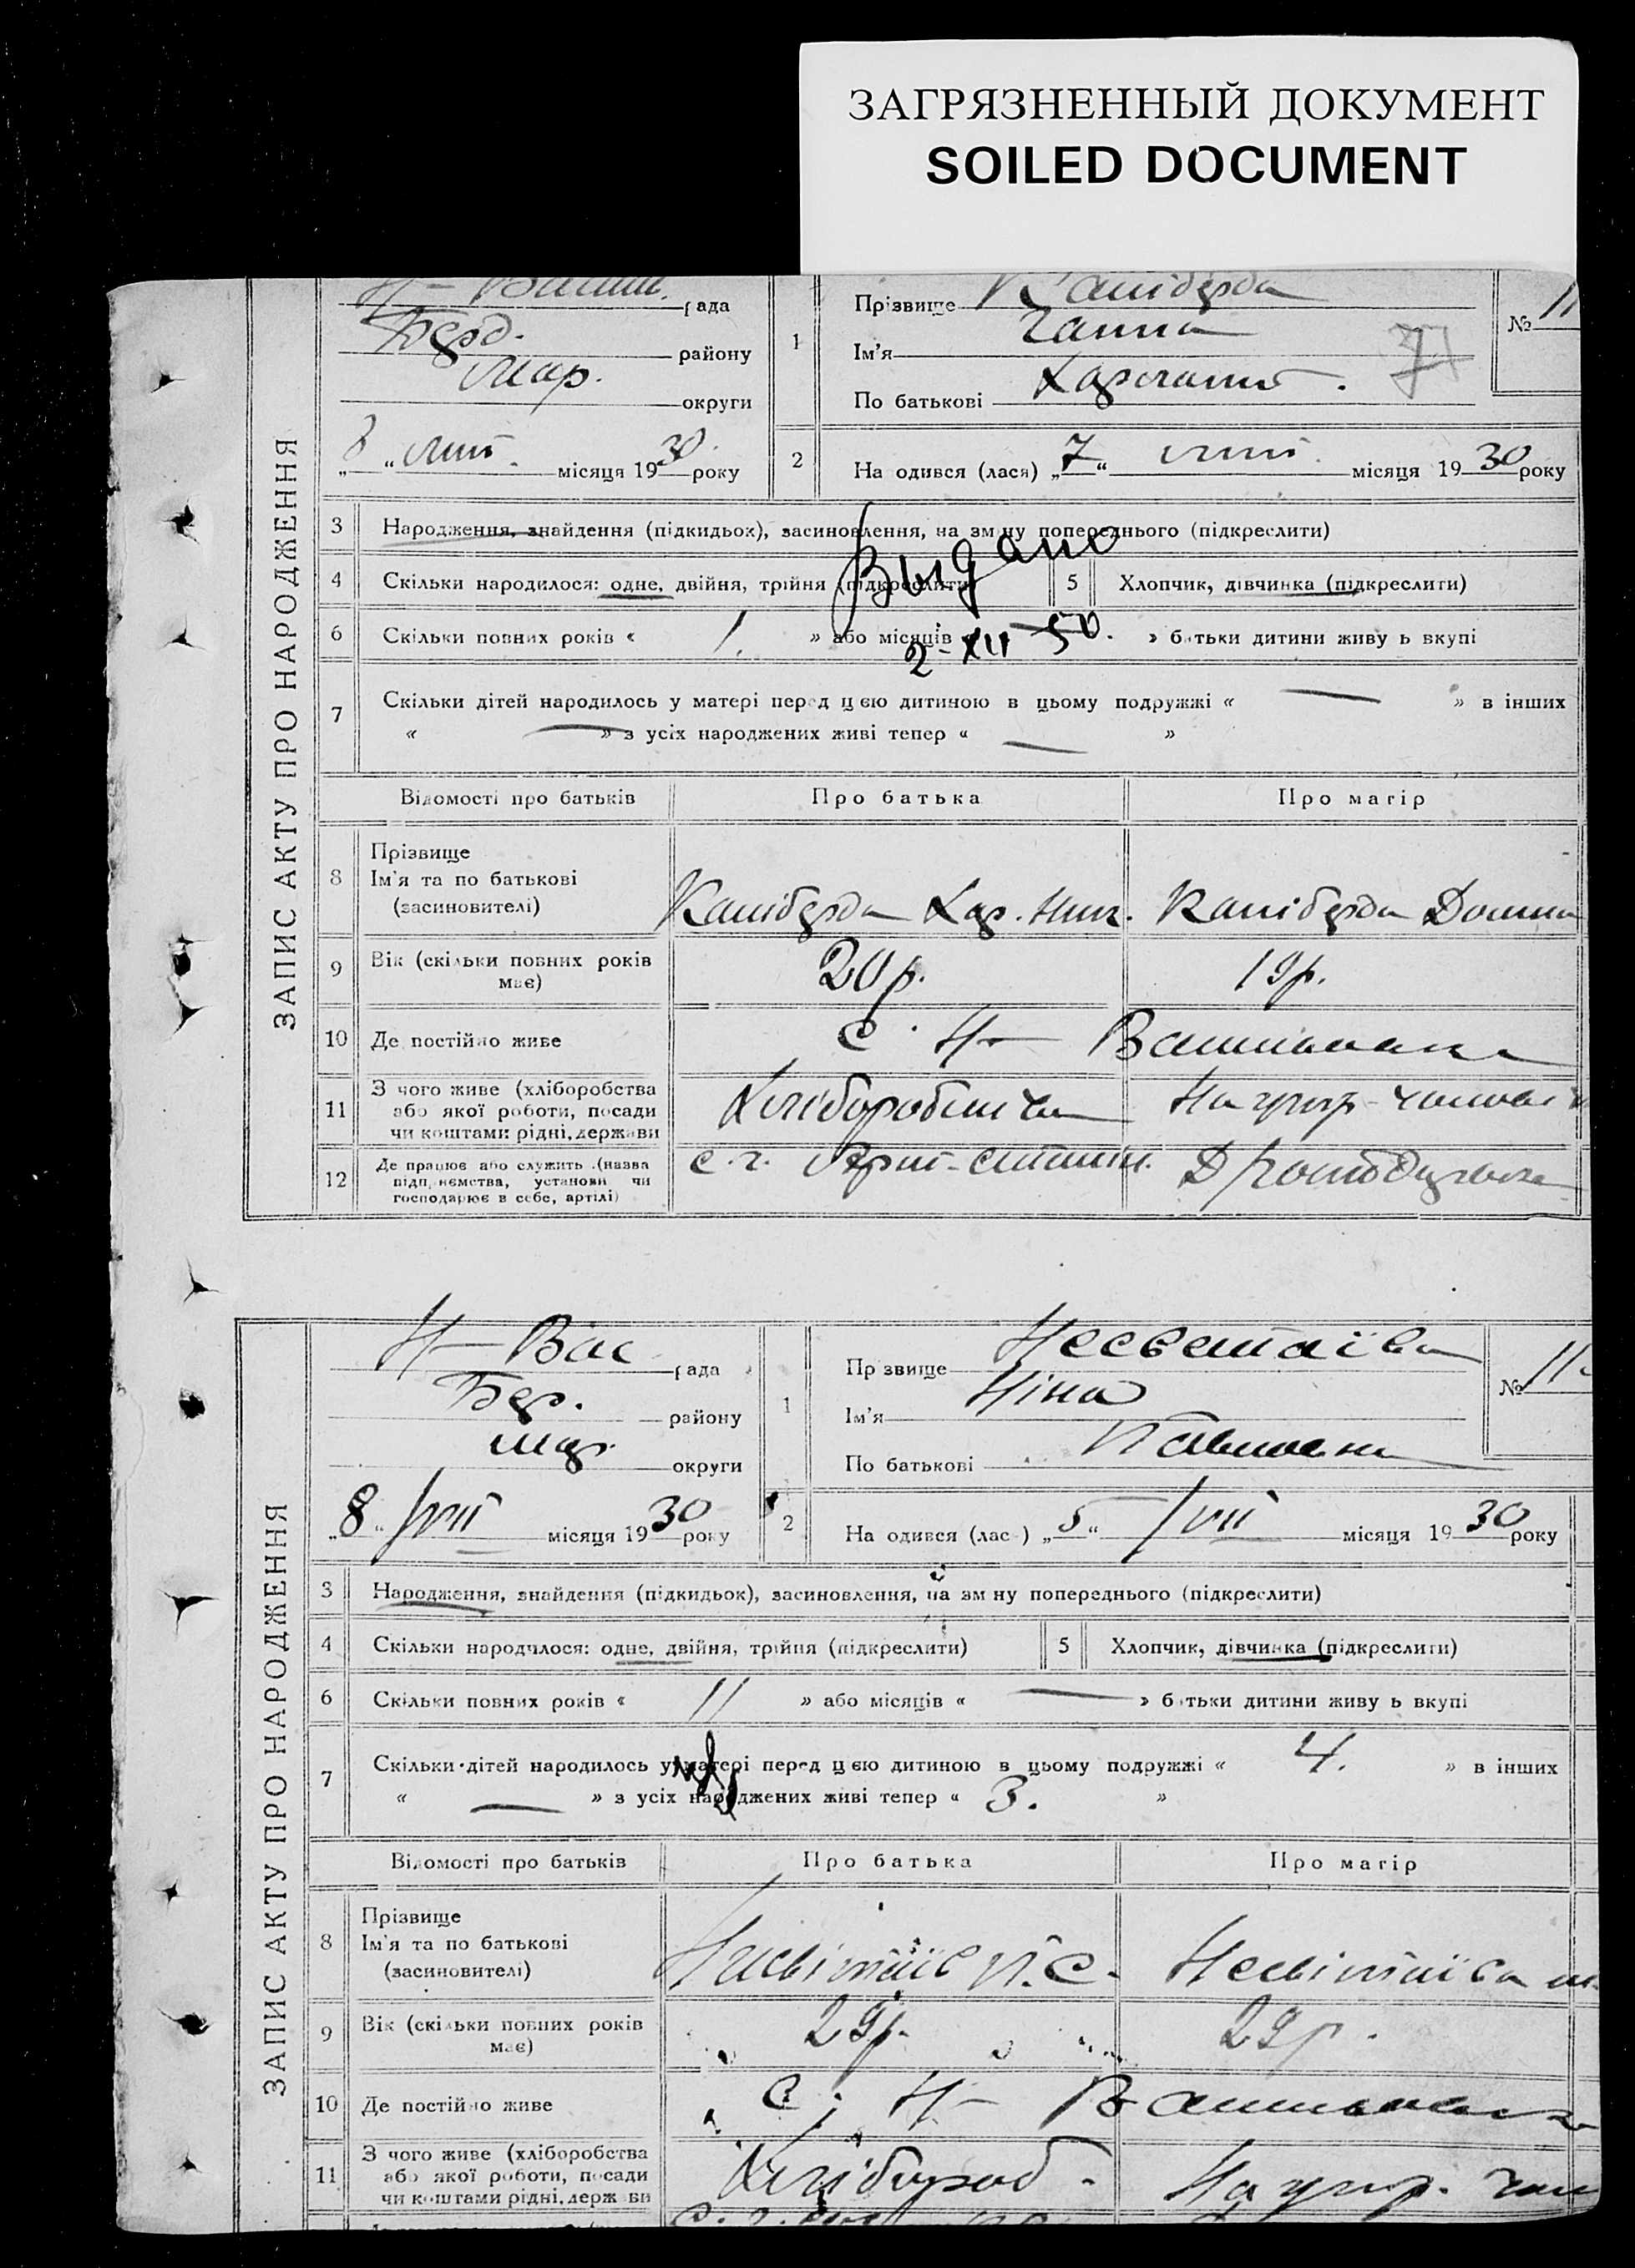 ЗАГРЯЗНЕННЫЙ ДОКУМЕНТ
SOILED DOCUMENT
ЗАПИС АКТУ ПРО НАРОДЖЕННЯ
рада
Берд. району
Мар. округи
„8“ лип. місяця 1930 року
1
Прізвище Каніберда
Ім'я Ганна
По батькові
№ 11
2
На одився (лася) „7“ лип. місяця 1930 року
3 Народження, знайдення (підкидьок), засиновлення, на зм ну попереднього (підкреслити)
Выдано
4 Скільки народилося: одне, двійня, трійня (підкреслити)
5 Хлопчик, дівчинка (підкреслити)
6 Скільки повних років « 1. » або місяців » б тьки дитини живу ь вкупі
2-XII 50.
7 Скільки дітей народилось у матері перед цією дитиною в цьому подружжі « — » в інших
« — » з усіх народжених живі тепер « — »
Відомості про батьків
Про батька
Про матір
8 Прізвище
Ім'я та по батькові
(засиновителі)
Каніберда Хар. Ник.
Каніберда Домна
9 Вік (скільки повних років має)
20 р.
19 р.
10 Де постійно живе
с. Н-
11 З чого живе (хліборобства
або якої роботи, посади
чи коштами рідні, держави
На утр.
12 Де працює або служить (назва
підп ємства, установи чи
господарює в себе, артілі)
с. г.
ЗАПИС АКТУ ПРО НАРОДЖЕННЯ
Н-Вас рада
Бер. району
мар. округи
„8“ /VII місяця 1930 року
1
Пр звище Несветаїва
Ім'я Ніна
По батькові
№ 11
2
На одився (лас ) „5“ /VII місяця 1930 року
3 Народження, знайдення (підкидьок), засиновлення, на зм ну попереднього (підкреслити)
4 Скільки народилося: одне, двійня, трійня (підкреслити)
5 Хлопчик, дівчинка (підкреслити)
6 Скільки повних років « 11 » або місяців « — » б тьки дитини живу ь вкупі
7 Скільки дітей народилось у матері перед цією дитиною в цьому подружжі « 4. » в інших
« — » з усіх народжених живі тепер « 3. »
Відомості про батьків
Про батька
Про матір
8 Прізвище
Ім'я та по батькові
(засиновителі)
П. С.
Несвітаїва
9 Вік (скільки повних років має)
29 р.
29 р.
10 Де постійно живе
с. Н-
11 З чого живе (хліборобства
або якої роботи, посади
чи коштами рідні, держ ви
Хлібороб.
На утр. чол